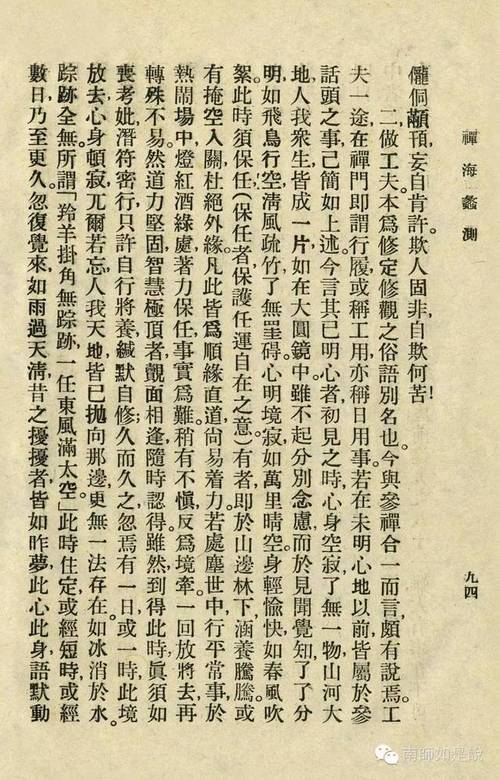 禪海蠡測
九四
儱侗顢頇,妄自肯許。欺人固非,自欺何苦!
二、做工夫本爲修定修觀之俗語別名也。今與參禪合一而言,頗有說焉。工
夫一途,在禪門即謂行履,或稱工用,亦稱日用事。若在未明心地以前,皆屬於參
話頭之事,已簡如上述。今言其已明心者,初見之時,心身空寂,了無一物,山河大
地,人我衆生,皆成一片,如在大圓鏡中。雖不起分別念慮,而於見聞覺知,了了分
明,如飛鳥行空,清風疏竹,了無罣碍。心明境寂,如萬里晴空,身輕愉快,如春風吹
絮。此時須保任,(保任者,保護任運自在之意)有者,即於山邊林下,涵養騰騰。或
有掩室入關,杜絕外緣。凡此皆爲順緣直道,尙易着力。若處塵世中,行平常事,於
熱鬧場中,燈紅酒綠處,著力保任,事實爲難,稍有不愼,反爲境牽。一回放將去,再
轉殊不易。然道力堅固,智慧極頂者,覿面相逢,隨時認得。雖然,到得此時,眞須如
喪考妣,潛符密行,只許自行將養,緘默自修。久而久之,忽焉有一日,或一時,此境
放去,心身頓寂,兀爾若忘,人我天地,皆已拋向那邊,更無一法存在,如冰消於水。
踪跡全無,所謂「羚羊掛角無踪跡,一任東風滿太空。」此時住定,或經短時,或經
數日,乃至更久,忽復覺來,如雨過天淸,昔之擾擾者,皆如昨夢,此心此身,語默動
南師如是說